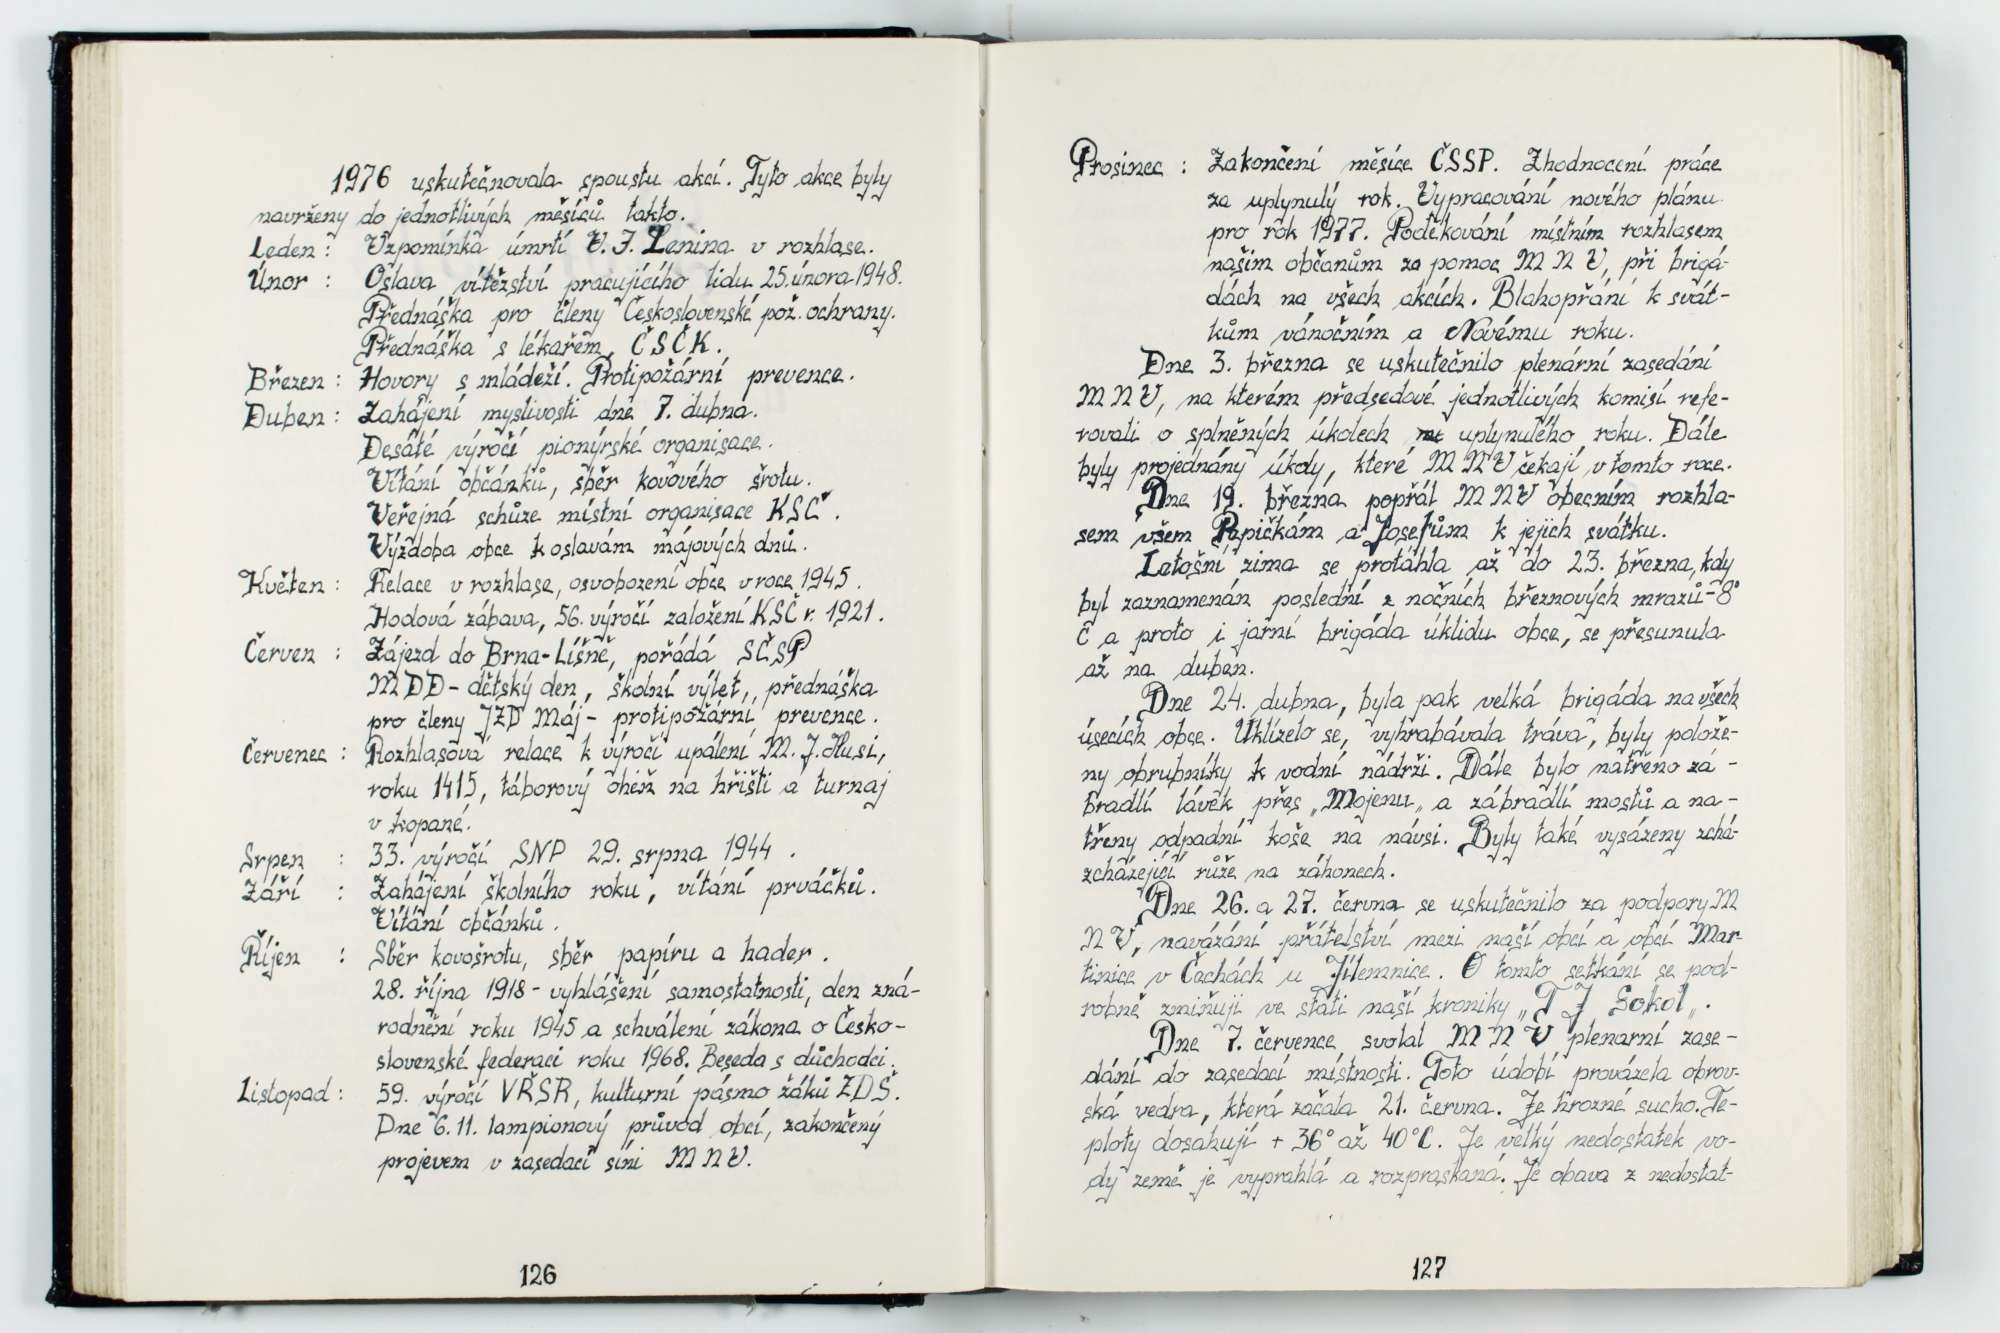 1976 uskutečnovala spoustu akcí. Tyto akce byly
navrženy do jednotlivých měsíců takto.
Leden : Vzpomínka úmrtí V. I. Lenina v rozhlase.
Únor : Oslava vítězství pracujícího lidu 25. února 1948.
Přednáška pro členy Československé pož. ochrany.
Přednáška s lékařem, ČSČK.
Březen : Hovory s mládeží. Protipožární prevence.
Duben : Zahájení myslivosti dne 7. dubna.
Desáté výročí pionýrské organisace.
Vítání občánků, sběr kovového šrotu.
Veřejná schůze místní organisace KSČ.
Výzdoba obce k oslavám májových dnů.
Květen : Relace v rozhlase, osvobození obce v roce 1945.
Hodová zábava, 56. výročí založení KSČ r. 1921.
Červen : Zájezd do Brna-Líšně, pořádá SČSP
MDD - dětský den, školní výlet, přednáška
pro členy JZD Máj - protipožární prevence.
Červenec : Rozhlasová relace k výročí upálení M. J. Husi,
roku 1415, táborový oheň na hřišti a turnaj
v kopané.
Srpen : 33. výročí SNP 29. srpna 1944 .
Září : Zahájení školního roku, vítání prváčků.
Vítání občánků.
Říjen : Sběr kovošrotu, sběr papíru a hader.
28. října 1918 - vyhlášení samostatnosti, den zná-
rodnění roku 1945 a schválení zákona o Česko-
slovenské federaci roku 1968. Beseda s důchodci.
Listopad : 59. výročí VŘSR, kulturní pásmo žáků ZDŠ.
Dne 6. 11. lampionový průvod obcí, zakončený
projevem v zasedací síni MNV.
126
Prosinec : Zakončení měsíce ČSSP. Zhodnocení práce
za uplynulý rok. Vypracování nového plánu
pro rok 1977. Poděkování místním rozhlasem
našim občanům za pomoc MNV, při brigá-
dách na všech akcích. Blahopřání k svát-
kům vánočním a Novému roku.
Dne 3. března se uskutečnilo plenární zasedání
MNV, na kterém předsedové jednotlivých komisí refe-
rovali o splněných úkolech uplynulého roku. Dále
byly projednány úkoly, které MNV čekají v tomto roce.
Dne 19. března popřál MNV obecním rozhla-
sem všem Pepičkám a Josefům k jejich svátku.
Letošní zima se protáhla až do 23. března, kdy
byl zaznamenán poslední z nočních březnových mrazů -8°
C a proto i jarní brigáda úklidu obce, se přesunula
až na duben.
Dne 24. dubna, byla pak velká brigáda na všech
úsecích obce. Uklízelo se, vyhrabávala tráva, byly polože-
ny obrubníky k vodní nádrži. Dále bylo natřeno zá-
bradlí lávek přes „Mojenu„ a zábradlí mostů a na-
třeny odpadní koše na návsi. Byly také vysázeny zchá-
zcházející růže na záhonech.
Dne 26. a 27. června se uskutečnilo za podpory M
NV, navázání přátelství mezi naší obcí a obcí Mar-
tinice v Čechách u Jilemnice. O tomto setkání se pod-
robně zmiňuji ve stati naší kroniky „TJ Sokol„.
Dne 7. července svolal MNV plenarní zase-
dání do zasedací místnosti. Toto údobí provázela obrov-
ská vedra, která začala 21. června. Je hrozné sucho. Te-
ploty dosahují + 36° až 40°C. Je velký nedostatek vo-
dy země je vyprahlá a rozpraskaná. Je obava z nedostat-
127